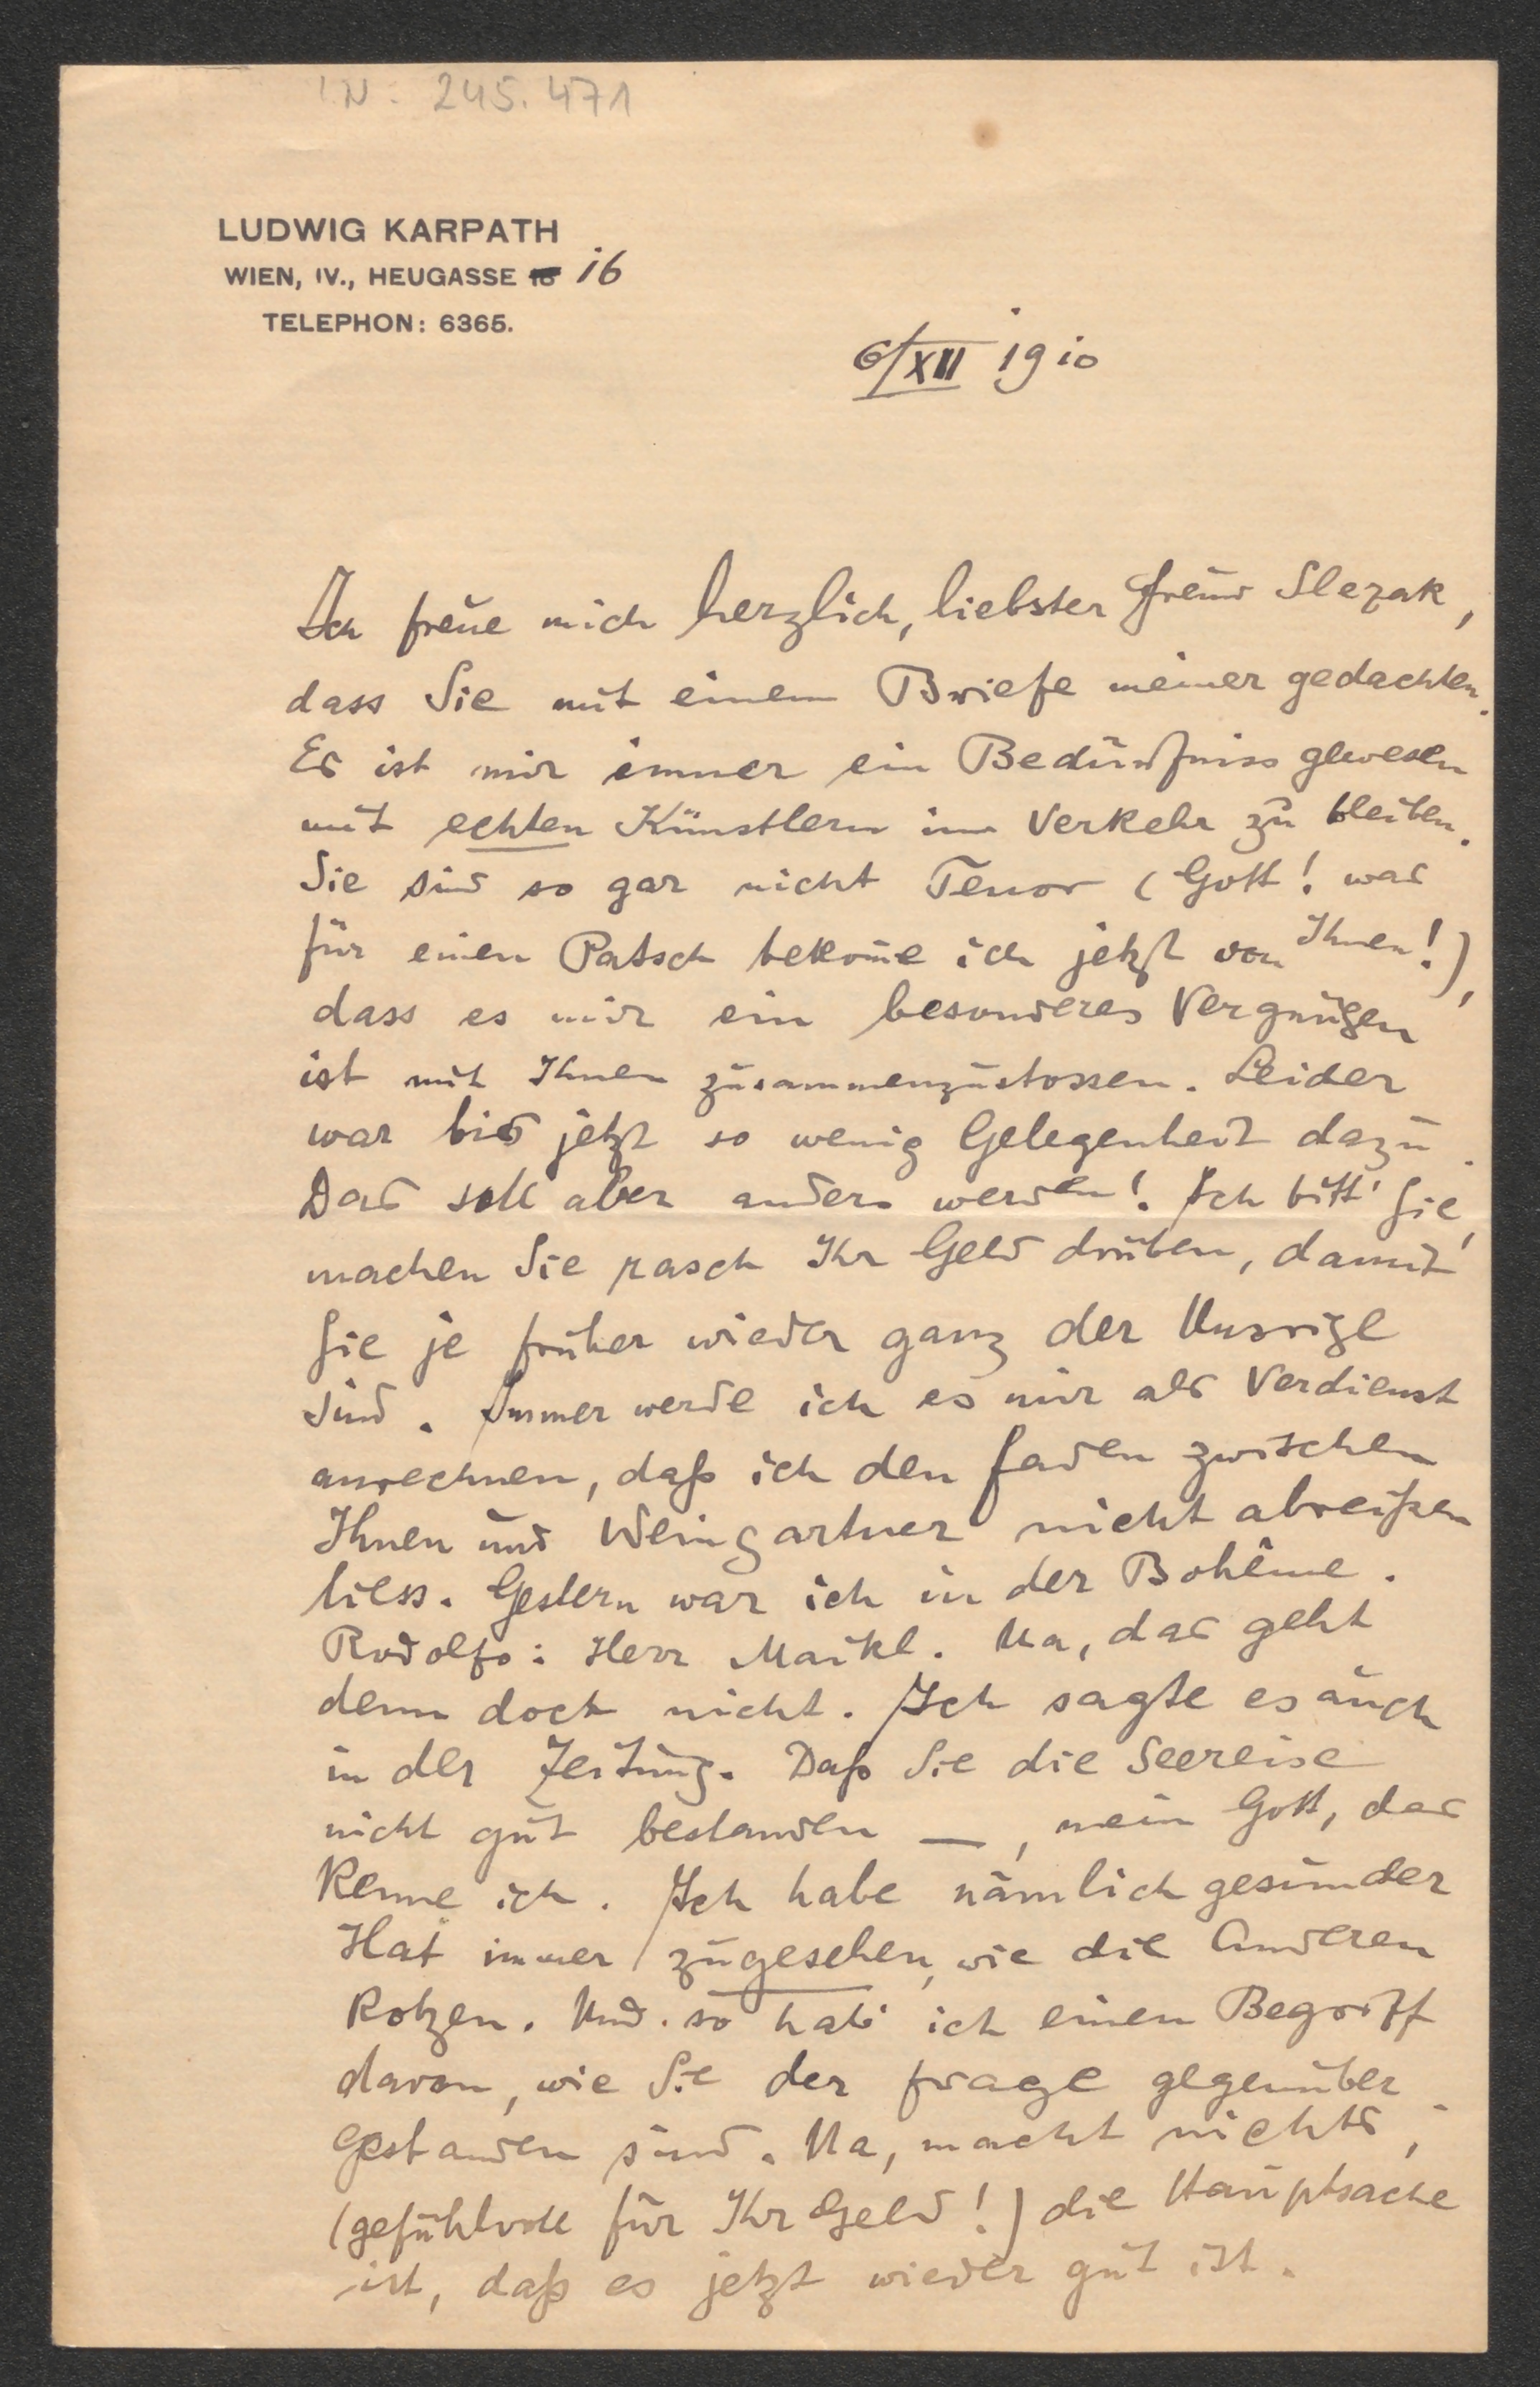 IN: 245.471
LUDWIG KARPATH
WIEN, IV., HEUGASSE 16
TELEPHON: 6365.
6/XII 1910
Ich freue mich herzlich, liebster Freund Slezak,
dass Sie mit einem Briefe meiner gedachten.
Es ist mir immer ein Bedürfniss gewesen
mit echten Künstlern im Verkehr zu bleiben.
Sie sind so gar nicht Tenor (Gott! was
für einen Patsch bekom̅e ich jetzt von Ihnen!),
dass es mir ein besonderes Vergnügen
ist mit Ihnen zusammenzustossen. Leider
war bis jetzt so wenig Gelegenheit dazu.
Das soll aber anders werden! Ich bitt' Sie,
machen Sie rasch Ihr Geld drüben, damit
Sie je früher wieder ganz der Unsrige
sind. Immer werde ich es mir als Verdienst
anrechnen, daß ich den Faden zwischen
Ihnen und Weingartner nicht abreißen
liess. Gestern war ich in der Bohême.
Rodolfo: Herr Maikl. Na, das geht
denn doch nicht. Ich sagte es auch
in der Zeitung. Daß Sie die Seereise
nicht gut bestanden —, mein Gott, das
kenne ich. Ich habe nämlich gesunder
Hat immer zugesehen, wie die Anderen
kotzen. Und so hab' ich einen Begriff
davon, wie Sie der Frage gegenüber
gestanden sind. Na, macht nichts,
(gefühlvoll für Ihr Geld!) die Hauptsache
ist, daß es jetzt wieder gut ist.